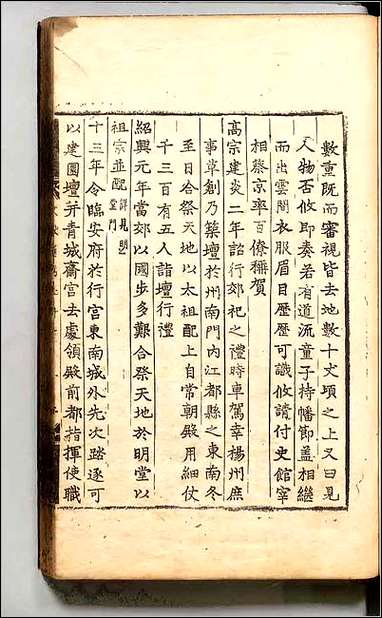 數重既而審視皆去地數十丈頃之上又曰見
人物否攸即奏若有道流童子持幡節盖相繼
而出雲間衣服眉目歷歷可識攸請付史館宰
相蔡京率百僚稱賀
高宗建炎二年詔行郊祀之禮時車駕幸楊州庶
事草創乃築壇於州南門內江都縣之東南冬
至日合祭天地以太祖配上自常朝殿用細仗
千三百有五人詣壇行禮
紹興元年當郊以國步多難合祭天地於明堂以
祖宗並配詳見明堂門
十三年令臨安府於行宮東南城外先次踏逐可
以建圜壇并青城齋宮去處領殿前都指揮使職